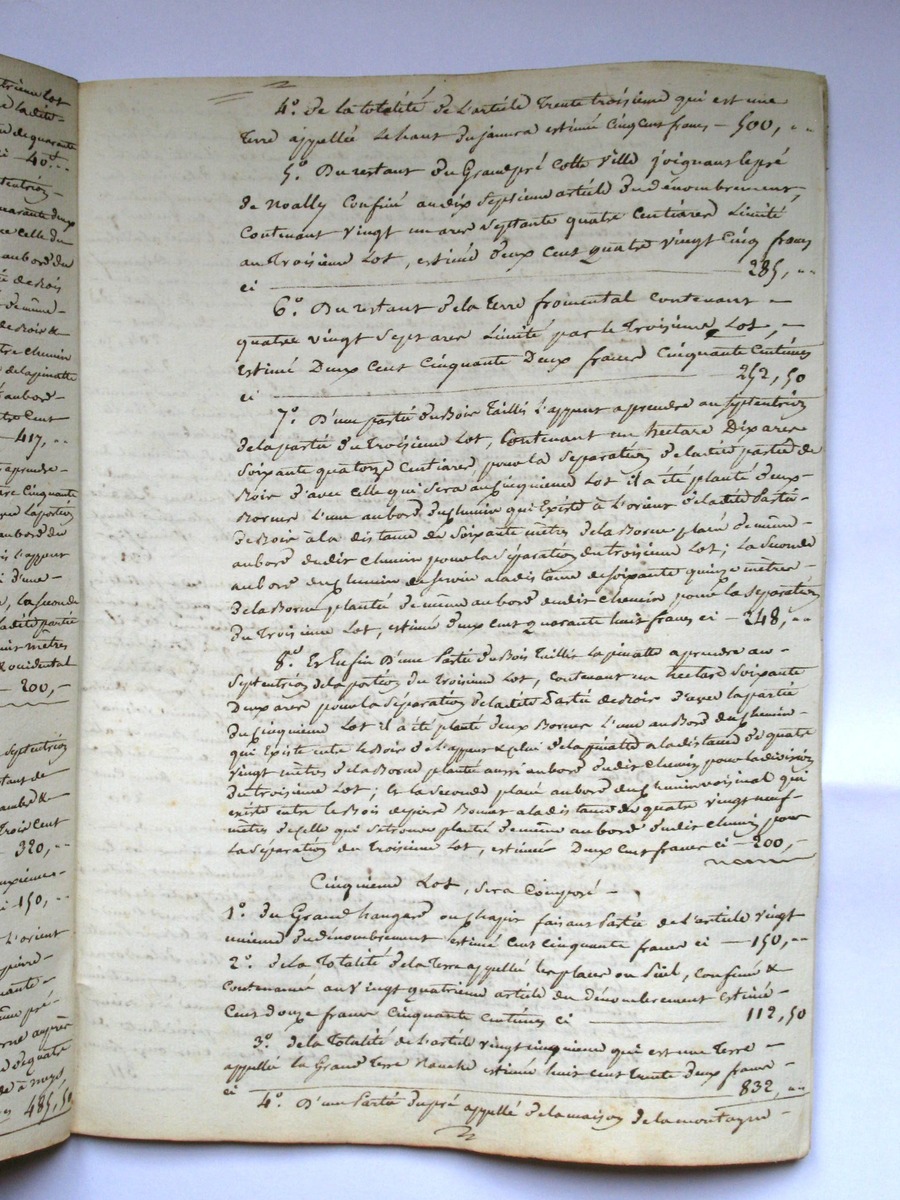 4º. de la totalité de L'article Trente troisieme qui est une
Terre appellée Le haut du jamera estimée Cinq Cent francs — 500, „ „
5º. Du restant du Grand pré Cotte Ville joignant le pré
de Noally Confiné au dix Septieme article du dénombrement,
Contenant Vingt un ares Septante quatre Centiares Limité
au Troisieme Lot, estimé Deux Cent quatre Vingt Cinq francs
ci — 285, „ „
6º. Du restant de la Terre fromental Contenant –
quatre Vingt Sept ares Limité par le Troisieme Lot, –
estimé Deux Cent Cinquante Deux francs Cinquante Centimes
ci — 252, 50
7º. D'une partie du Bois Taillis L'appurt a prendre au Septentrion
de la partie du Troisieme Lot, Contenant un hectare Dix ares
Soixante quatorze Centiares, pour la Separation de ladite partie de
Bois d'avec celle qui sera au Cinquieme Lot il a été planté deux
Bornes L'une au bord du chemin qui Existe à L'orient de ladite Partie
de Bois a la distance de Soixante mètres de la Borne placé de même
au bord dudit chemin pour la Séparation du troisieme Lot; La Seconde
au bord du chemin de a la distance de Soixante quinze mètres
de la Borne planté de même au bord dudit chemin pour la Separation
du Troisieme Lot, estimé deux cent quarante huit francs ci – 248, „ „
8º. Et Enfin D'une Partie du Bois Taillis La pinatte a prendre au –
Septentrion de la portion du Troisieme Lot, Contenant un hectare Soixante
Deux ares pour la Séparation de ladite Partie de Bois d'avec la partie
du Cinquieme Lot il a été planté deux Bornes L'une au Bord du chemin –
qui Existe entre le Bois de L'appurt & celui de la pinatte a la distance de quatre
vingt mètres de la Borne planté aussi au bord dudit Chemin pour la division
du troisieme Lot; Et la Seconde placé au bord du chemin voisinal qui
existe entre le Bois de a la distance de quatre vingt neuf
mètres de celle qui se trouve planté de même au bord dudit chemin pour
la Séparation du Troisieme Lot, estimée Deux Cent francs ci – 200, –
Cinquieme Lot, Sera Composé –
1º. du Grand hangard ou chapit faisant Partie de L'article Vingt
unieme du dénombrement estimé cent cinquante francs ci — 150, „ „
2º. de la Totalité de la Terre appellée Les places ou Suel, Confinée &
Contenancé au Vingt quatrieme article du dénombrement estimée
Cent douze francs Cinquante Centimes ci — 112, 50
3º. de la Totalité de L'article vingt cinquieme qui est une Terre –
appellée la Grand Terre estimée huit cent trente deux francs –
ci — 832, „ „
4º. D'une Partie du pré appellé de la maison de la montagne –
417, „
320, „
150, „
200, –
485, 50